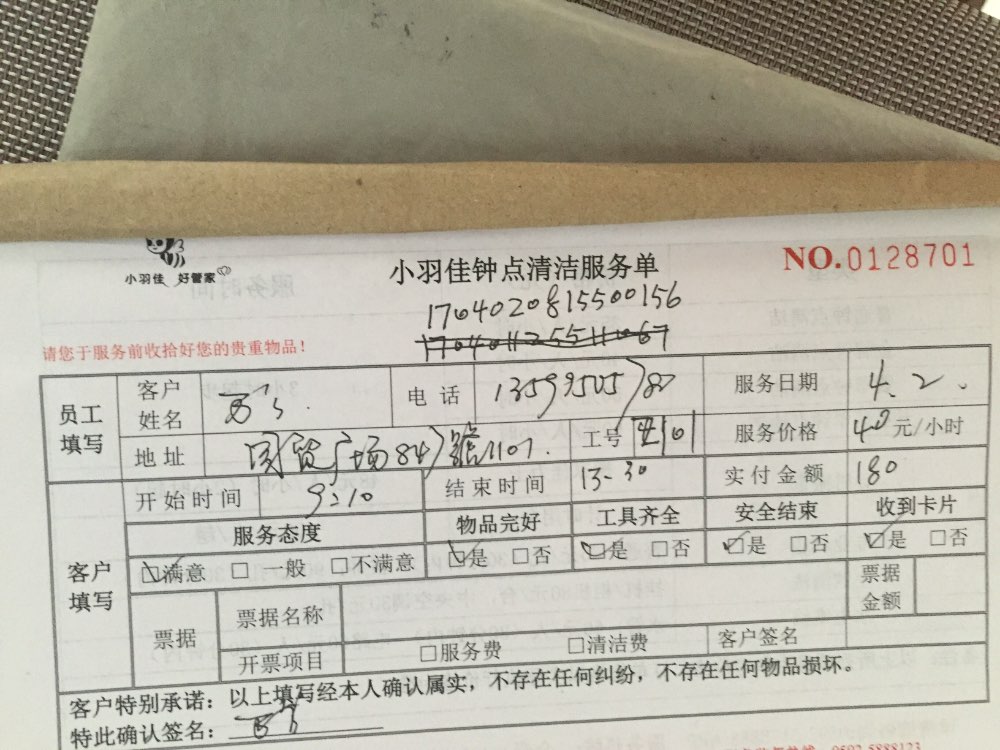 小羽佳 好管家
小羽佳钟点清洁服务单
NO.0128701
1704020815500156
请您于服务前收拾好您的贵重物品！
员工填写
客户姓名
电话 13599505782
服务日期 4.2.
地址 国贸广场84号1107.
工号 1101
服务价格 40元/小时
开始时间 9:10
结束时间 13-30
实付金额 180
客户填写
服务态度 物品完好 工具齐全 安全结束 收到卡片
☑满意 □一般 □不满意 ☑是 □否 ☑是 □否 ☑是 □否 ☑是 □否
票据
票据名称
票据金额
开票项目 □服务费 □清洁费 客户签名
客户特别承诺：以上填写经本人确认属实，不存在任何纠纷，不存在任何物品损坏。
特此确认签名：